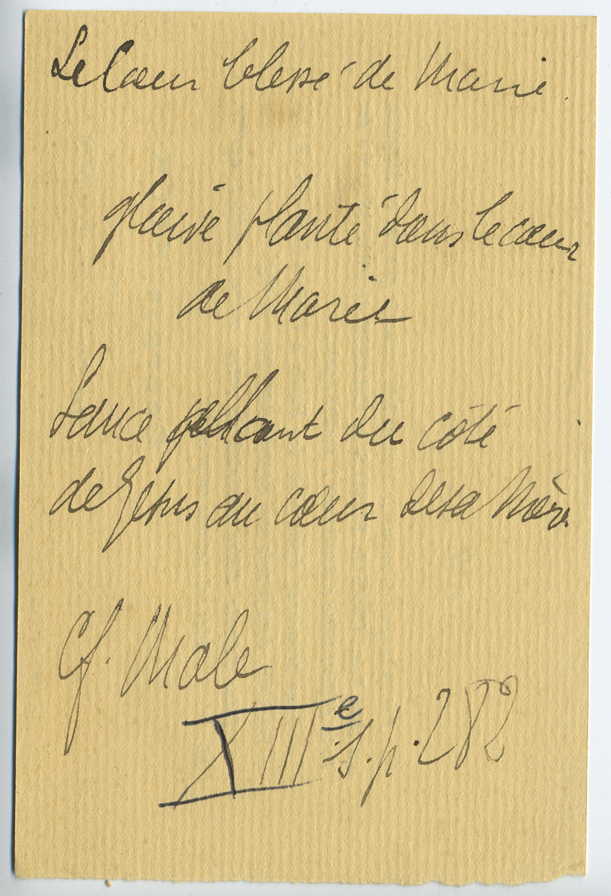 Le Cœur blessé de Marie.
glaive planté dans le cœur
de Marie
Lance allant du côté
de Jésus au cœur de sa Mère
Cf. Male
XIIIe s. p. 282